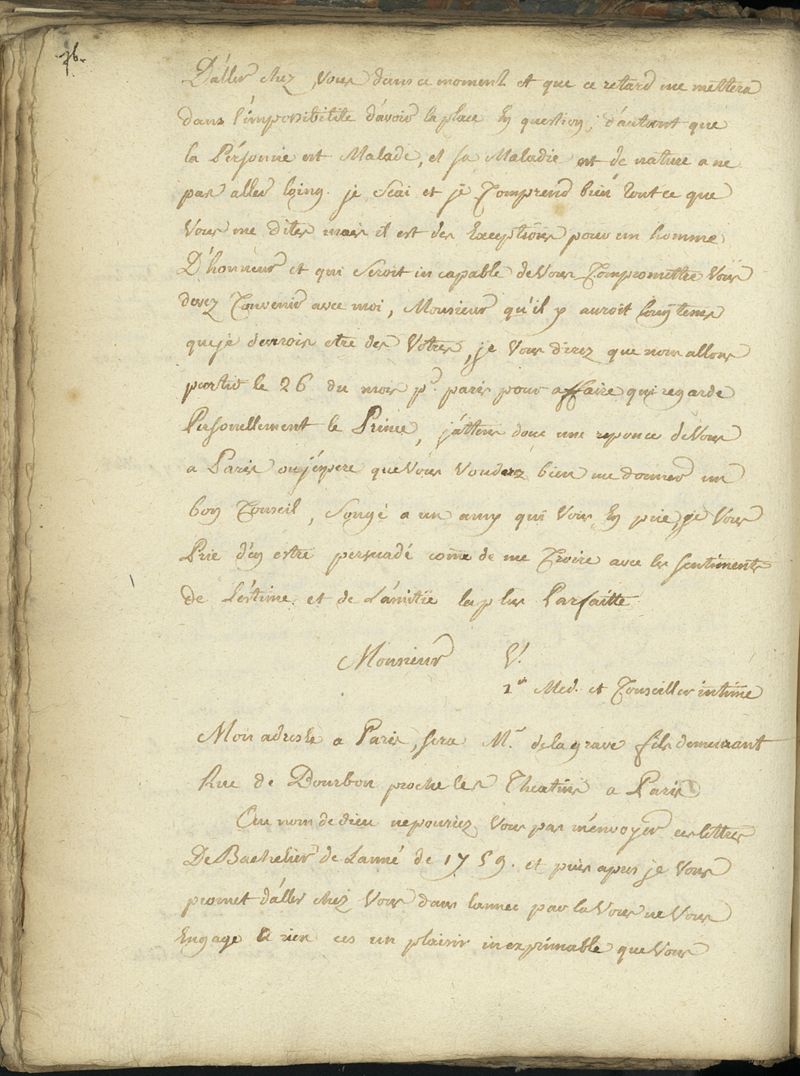 76.
D'aller chez Vous dans ce moment et que ce retard me mettera
dans l'impossibilité d'avoir la place En question, d'autant que
la Personne est Malade, et sa Maladie est de nature a ne
pas aller loing. je Scai et je Comprend bien tout ce que
Vous me dites mais il est des Exceptions pour un homme
D'honneur et qui Seroit incapable de Vous Compromettre Vous
devez Convenir avec moi, Monsieur qu'il y auroit longtems
que je devrois etre des Votres, je Vous direz que nous allons
partir le 26 du mois pr. paris pour affaire qui regarde
Personellement le Prince, j'attens donc une reponce de Vous
a Paris ou j'espere que Vous Vouderez bien me donner un
bon Conseil, Songé a un amy qui Vous En prie, je Vous
Prie d'en estre persuadé come de me Croire avec les sentiments
de L'estime et de L'amitie la plus Parfaitte
Monsieur V.
1er Med. et Conseiller intime
Mon adresse a Paris, sera Mr. de la grave fils demeurant
Rue de Bourbon proche les Theatins a Paris
Au nom de dieu ne pouriez Vous pas m'envoyer ces lettres
De Bachelier de L'anné de 1759. et puis apres je Vous
promet d'aller chez Vous dans l'annee par la Vous ne Vous
Engagé a rien ces un plaisir inexprimable que Vous